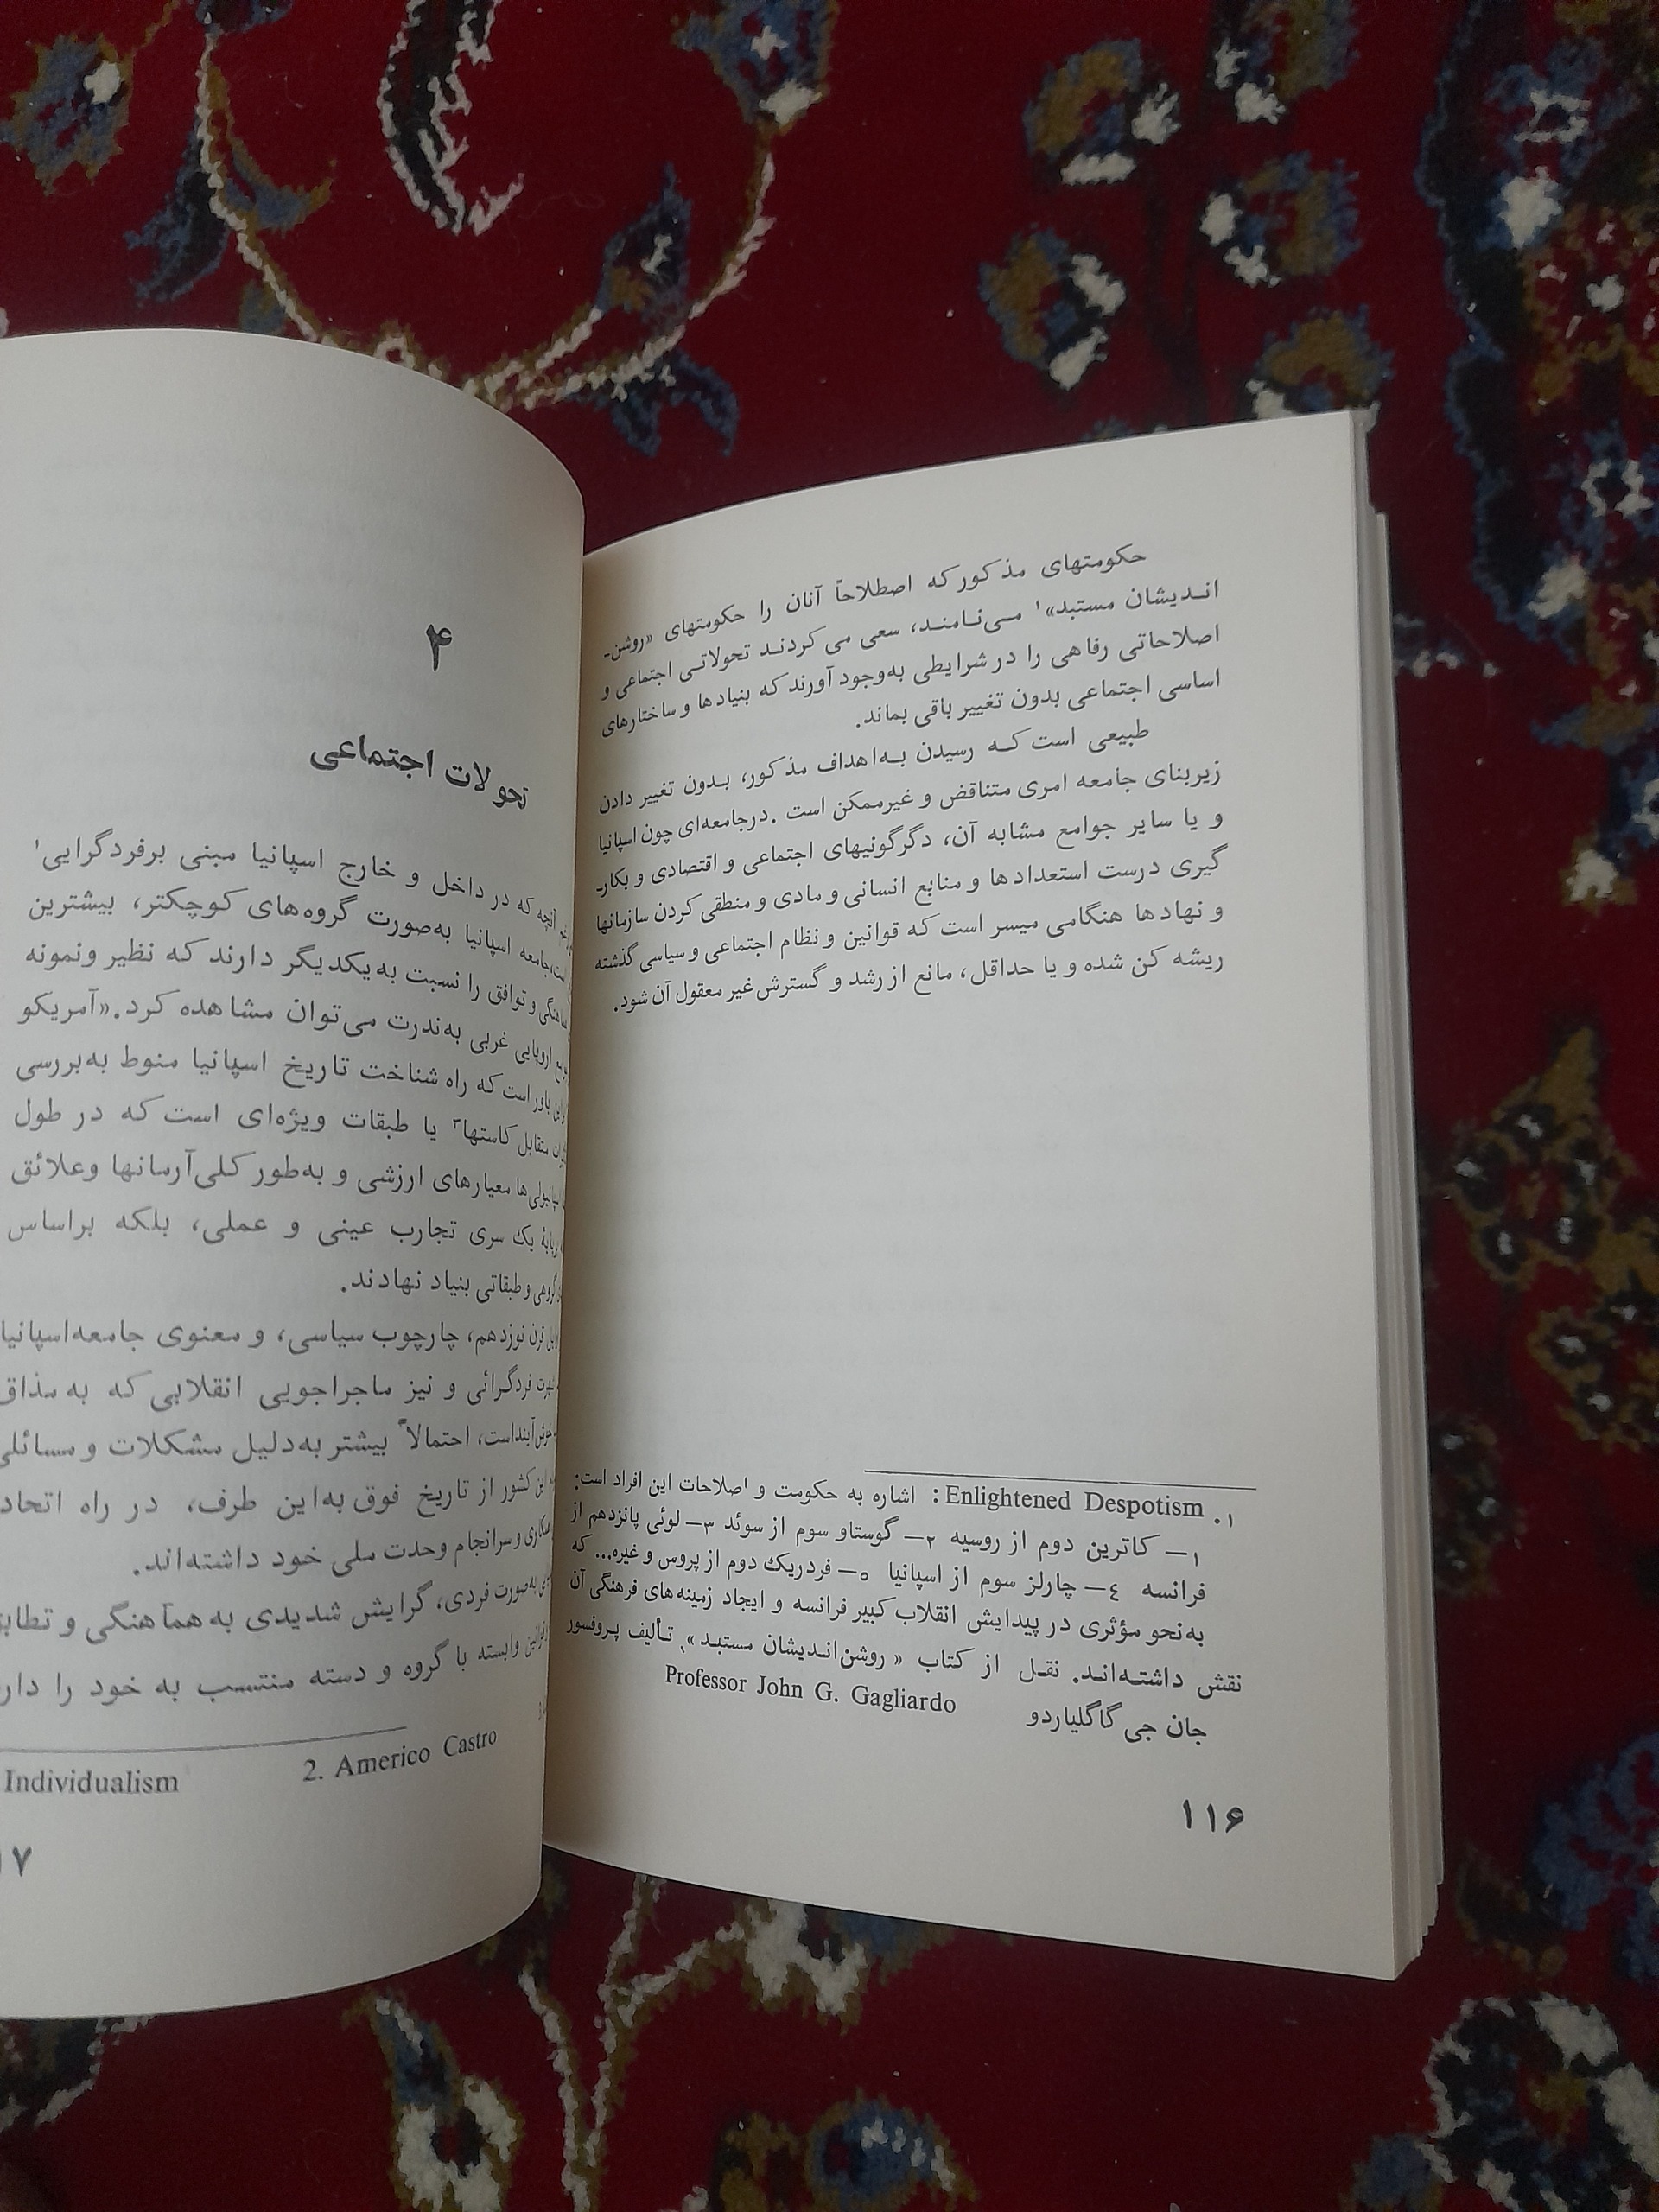 حکومتهای مذکور که اصطلاحاً آنان را حکومتهای «روشن-
اندیشان مستبد»۱ می‌نامند، سعی می کردند تحولاتی اجتماعی و
اصلاحاتی رفاهی را در شرایطی به‌وجود آورند که بنیادها و ساختارهای
اساسی اجتماعی بدون تغییر باقی بماند.
طبیعی است که رسیدن به‌اهداف مذکور، بدون تغییر دادن
زیربنای جامعه امری متناقض و غیرممکن است. درجامعه‌ای چون اسپانیا
و یا سایر جوامع مشابه آن، دگرگونیهای اجتماعی و اقتصادی و بکار-
گیری درست استعدادها و منابع انسانی و مادی و منطقی کردن سازمانها
و نهادها هنگامی میسر است که قوانین و نظام اجتماعی و سیاسی گذشته
ریشه کن شده و یا حداقل، مانع از رشد و گسترش غیر معقول آن شود.
۱. Enlightened Despotism: اشاره به حکومت و اصلاحات این افراد است:
۱— کاترین دوم از روسیه ۲— گوستاو سوم از سوئد ۳— لوئی پانزدهم از
فرانسه ٤— چارلز سوم از اسپانیا ٥— فردریک دوم از پروس و غیره... که
به‌نحو مؤثری در پیدایش انقلاب کبیر فرانسه و ایجاد زمینه‌های فرهنگی آن
نقش داشته‌اند. نقل از کتاب «روشن‌اندیشان مستبد»، تألیف پروفسور
جان جی گاگلیاردو Professor John G. Gagliardo
۱۱۶
۴
تحولات اجتماعی
آنچه که در داخل و خارج اسپانیا مبنی برفردگرایی۱
جامعه اسپانیا به‌صورت گروه‌های کوچکتر، بیشترین
و توافق را نسبت به یکدیگر دارند که نظیر ونمونه
اروپایی غربی به‌ندرت می‌توان مشاهده کرد. «آمریکو
باور است که راه شناخت تاریخ اسپانیا منوط به‌بررسی
متقابل کاستها۳ یا طبقات ویژه‌ای است که در طول
اسپانیولی‌ها معیارهای ارزشی و به‌طور کلی آرمانها وعلائق
یک سری تجارب عینی و عملی، بلکه براساس
گروهی و طبقاتی بنیاد نهادند.
قرن نوزدهم، چارچوب سیاسی، و معنوی جامعه‌اسپانیا
فردگرائی و نیز ماجراجویی انقلابی که به مذاق
خوش‌آینداست، احتمالاً بیشتر به‌دلیل مشکلات و مسائلی
این کشور از تاریخ فوق به‌این طرف، در راه اتحاد
و سرانجام وحدت ملی خود داشته‌اند.
به‌صورت فردی، گرایش شدیدی به‌هماهنگی و تطابق
قوانین وابسته با گروه و دسته منتسب به خود را
2. Americo Castro
Individualism
۱۷